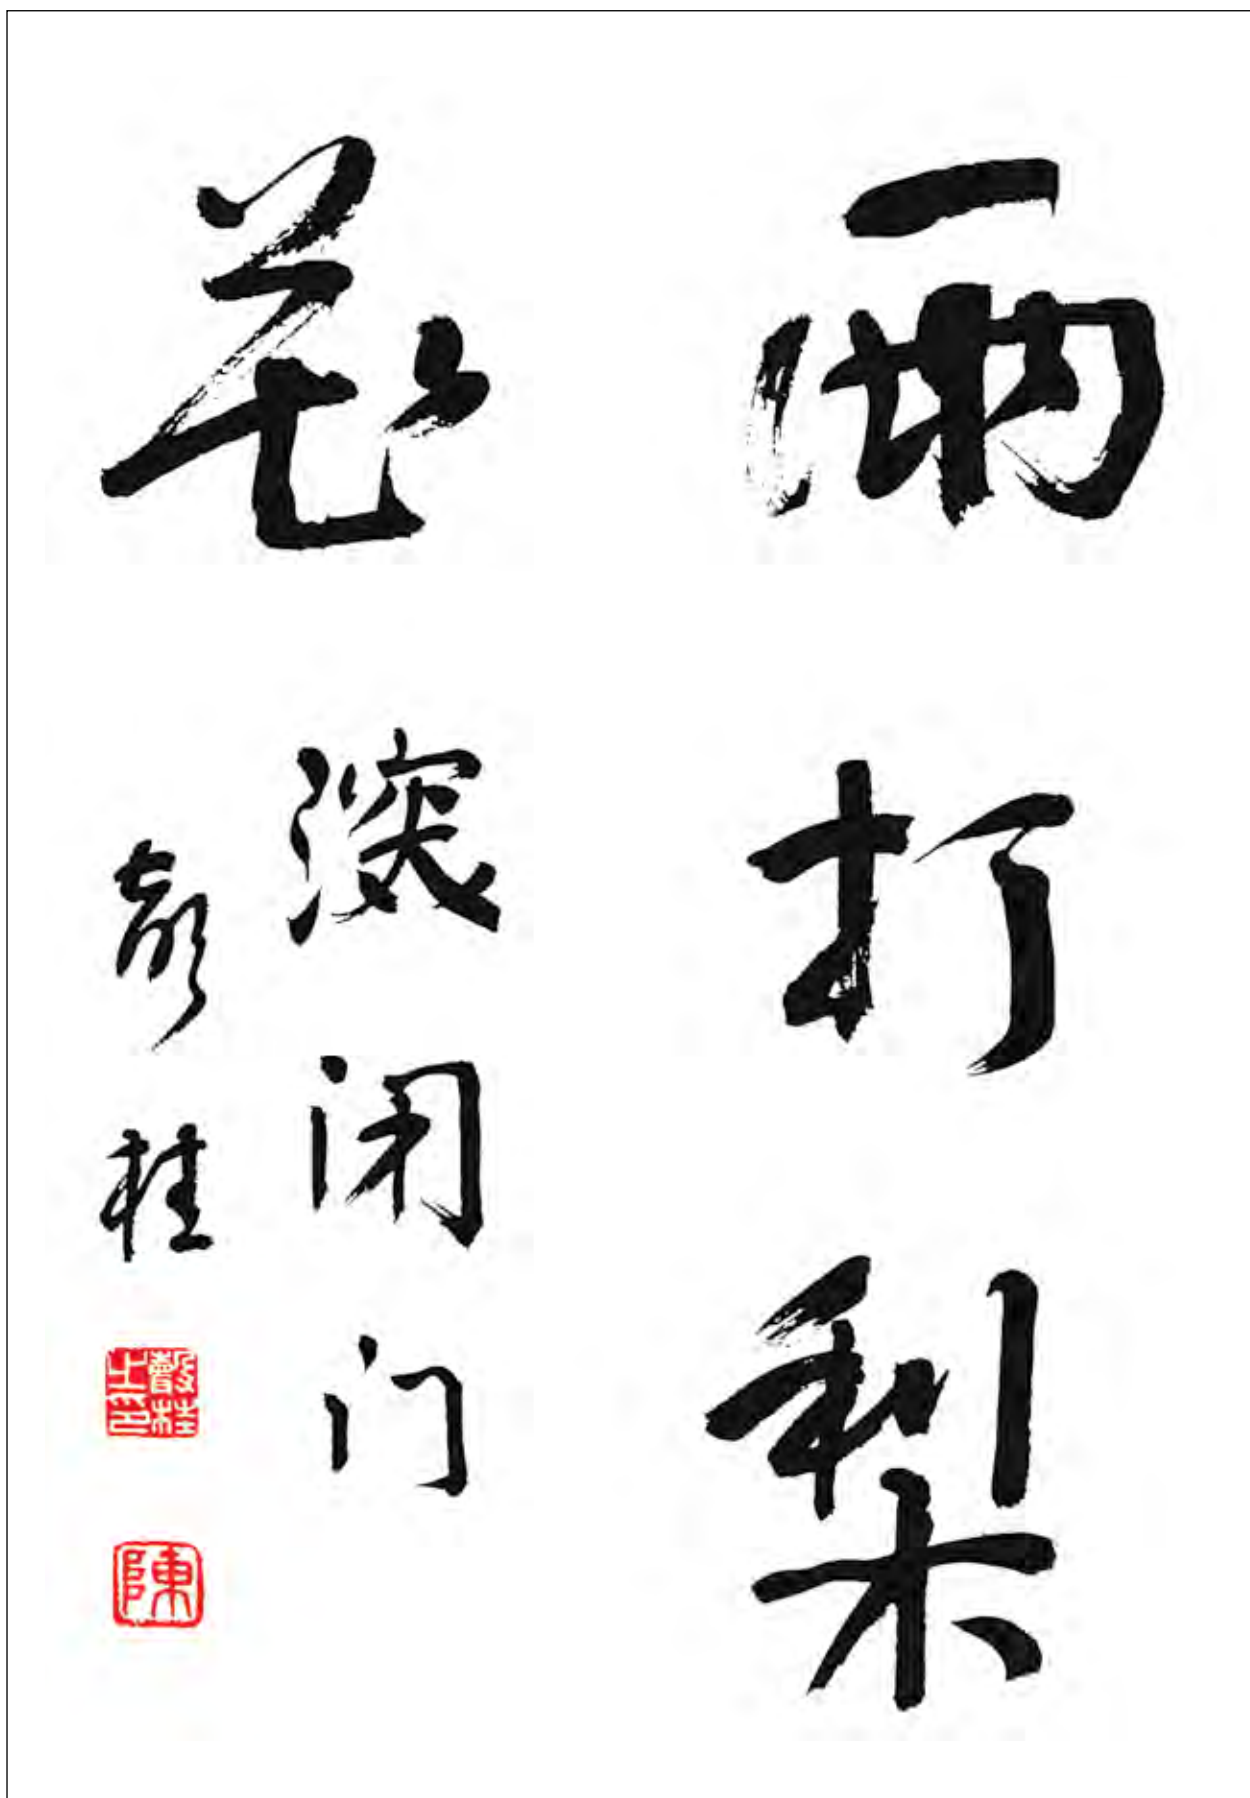 雨打梨
花
深闭门
聲桂
聲桂之印
陳